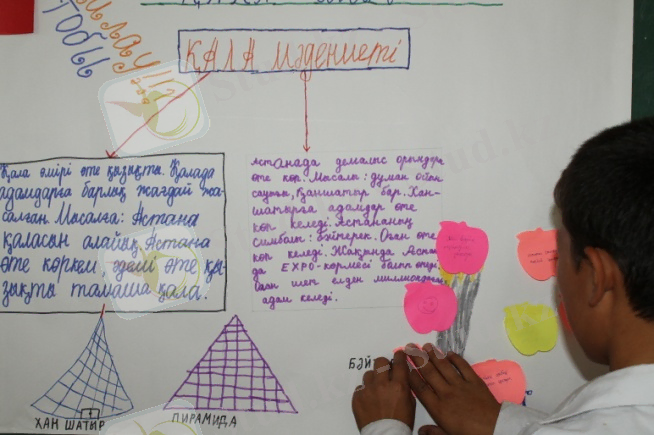 ТОБЫ
ҚАЛА МӘДЕНИЕТІ
Қала өмірі өте қызықты. Қалада
адамдарға барлық жағдай жа-
салған. Мысалға: Астана
қаласын алайық. Астана
өте көркем, әдемі өте қы-
зықты тамаша қала.
Астанада демалыс орындары
өте көп. Мысалы: думан ойын
сауық, Ханшатыр бар. Хан-
шатырға адамдар өте
көп келеді. Астананың
символы: бәйтерек. Оған өте
көп келеді. Жақында Астана
да EXPO-көрмесі болып өтеді
оған шет елден миллиондаған
адам келеді.
ХАН ШАТЫР
ПИРАМИДА